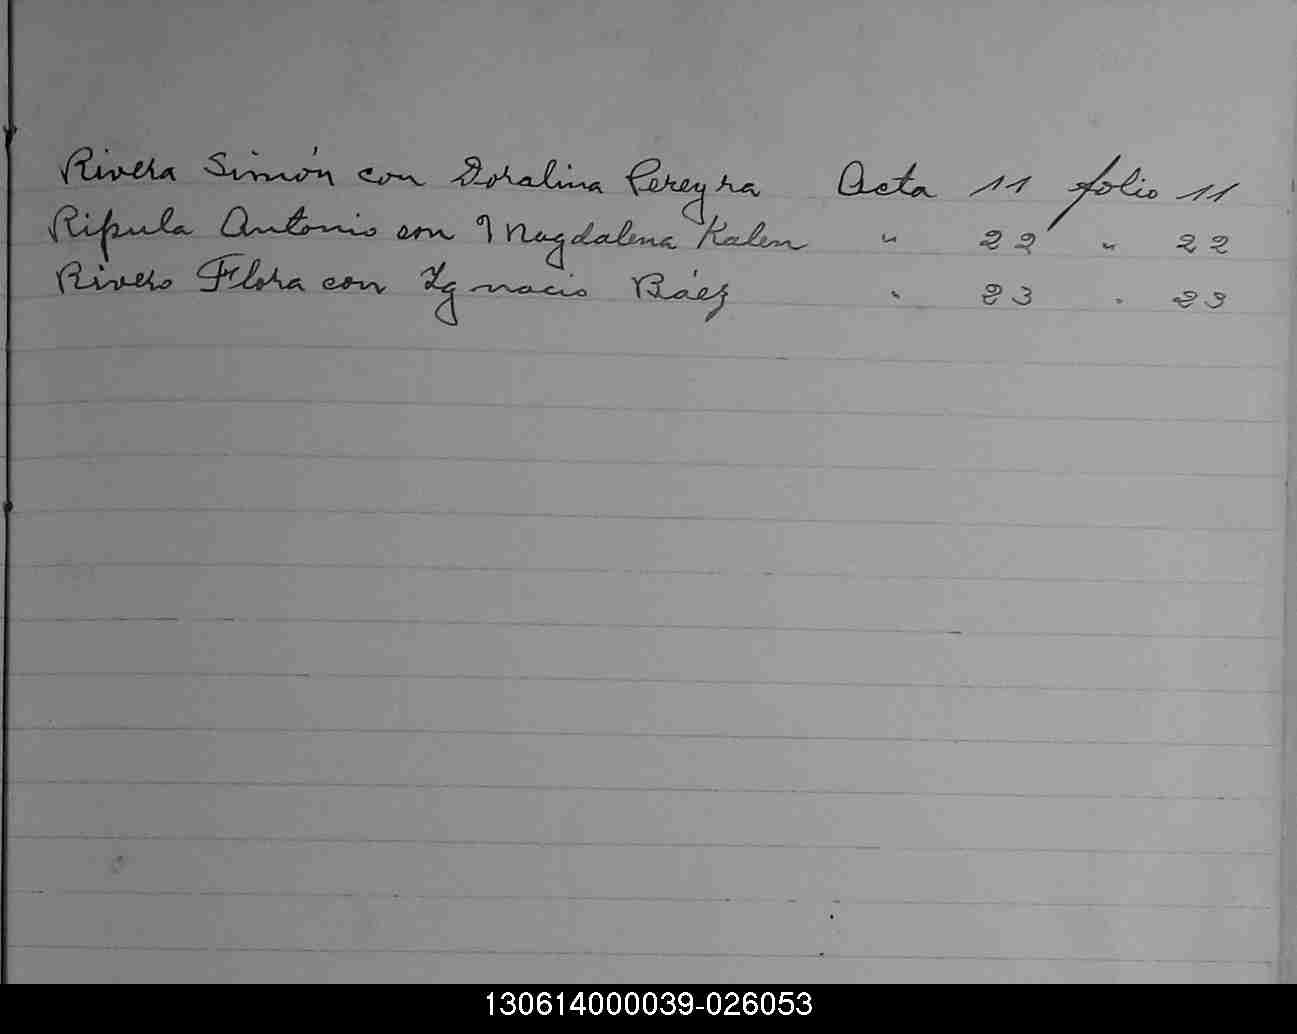 Rivera Simón con Doralina Pereyra Acta 11 folio 11
Ripula Antonio con Magdalena Kalen " 22 " 22
Rivero Flora con Ygnacio Báez " 23 " 23
130614000039-026053